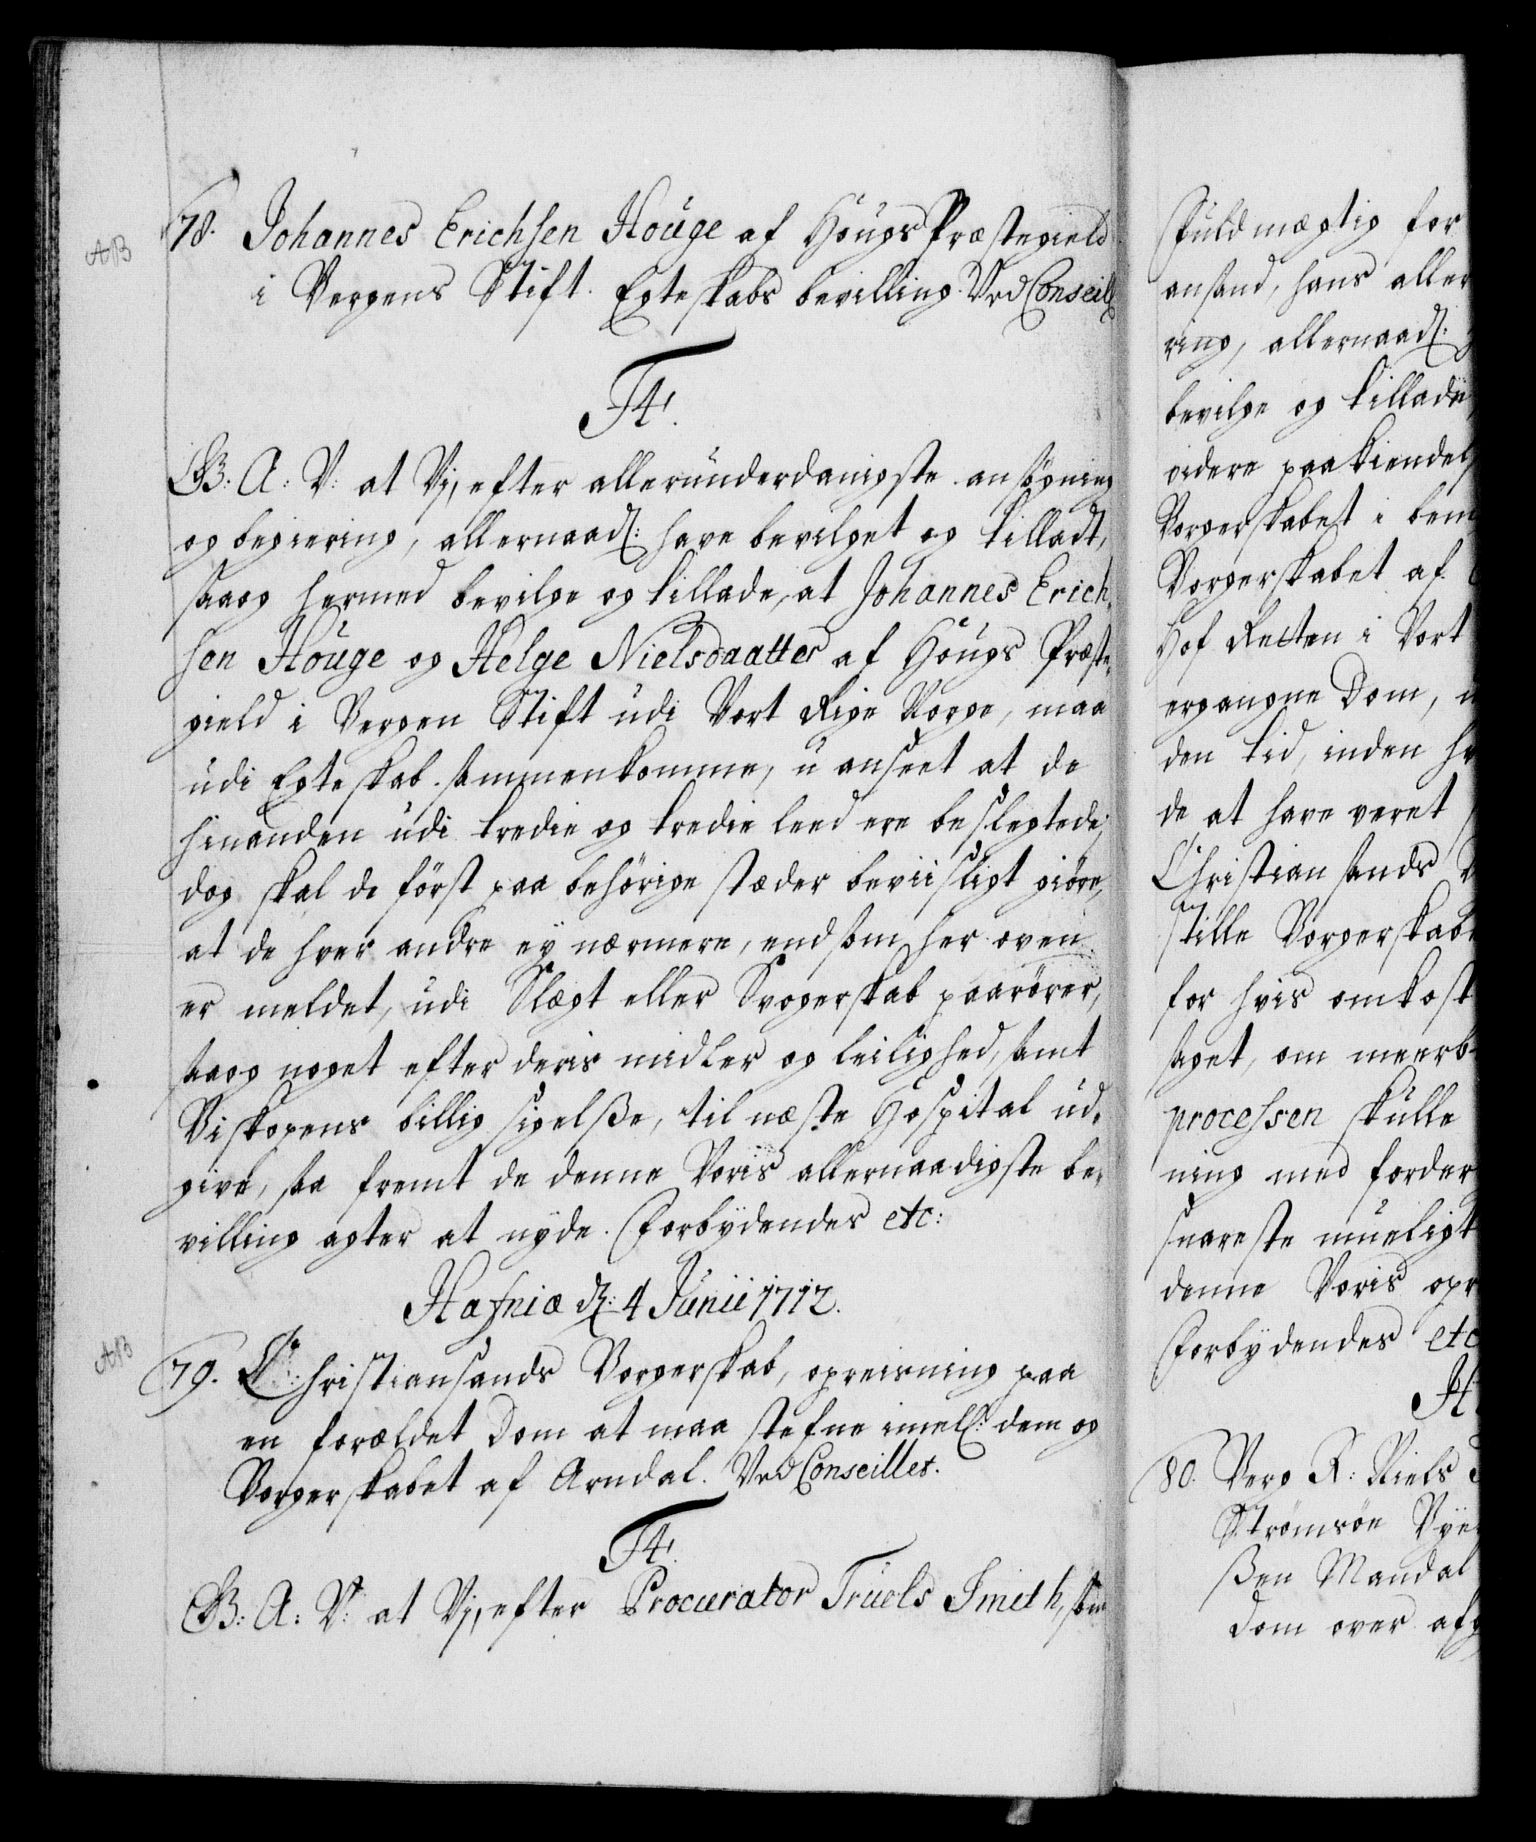 AB
78. Johannes Erichsen Houge af Hougs Præstegield
i Bergens Stift. Egteskabs bevilling. Ved Conseill
F4.
G. B: A: V: at Vj, efter allerunderdanigste ansøgning
og begiering, allernaad: have bevilget og tilladt,
saa og hermed bevilge og tillade, at Johannes Erich-
sen Houge og Helge Nielsdaatter af Hougs Præste-
gield i Bergen Stift udi Vort Rige Norge, maa
udi Egteskab sammenkomme, u anseet at de
hinanden udi tredie og tredie leed ere beslegtede,
dog skal de först paa behörige stæder beviisligt giöre,
at de hver andre eÿ nærmere, end som her oven
er meldet, udi Slægt eller Svogerskab paarörer,
saa og noget efter deris midler og leilighed, samt
Biskopens billig sigelsße, til næste Hospital ud-
give, saa fremt de denne Voris allernaadigste be-
villing agter at nyde. Forbÿdendes etc:
Hafniæ d: 4 Junii 1712.
AB
79. Christiansands Borgerskab, opreisning paa
en forældet Dom at maa stefne imell: dem og
Borgerskabet af Arndal. Ved Conseillet.
F4.
G. B: A: V: at Vj, efter Procurator Truels Smith, som
Fuldmægtig for
ansand, hans aller
ring, allernaad:
bevilge og tillade
videre paakiendel
Borgerskabet i bem
Borgerskabet af
Hof Retten i Vort
ergangne Dom,
den tid, inden
de at have veret
Christiansands
stille Borgerskab
for hvis omkost
saget, om meerb
processen skulle
ning med forder
snareste mueligt
denne Voris opr
Forbydendes etc
H
80. Berg R: Niels
Strömsöe Bÿe
ßen Mandal
Dom over afg